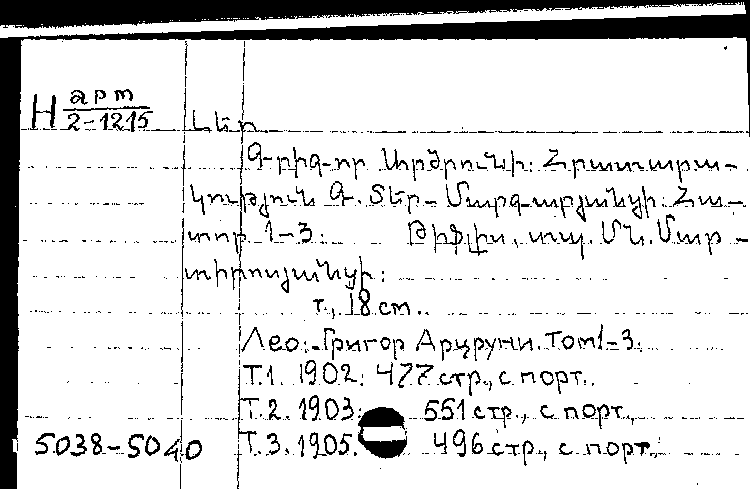 H арт
2-1215
Լեո
Գրիգոր Արծրունի: Հրատարա-
կություն Գ. Տեր-Մարգարյանցի: Հա-
տոր 1-3: Թիֆլիս, տպ. Մն. Մար-
տիրոսյանցի:
т., 18 cm..
Лео:-Григор Арцруни. Том 1-3.
Т.1. 1902. 477 стр., с порт.
Т.2. 1903. 551 стр., с порт.,
5038-5040 Т.3. 1905. 496 стр., с порт.